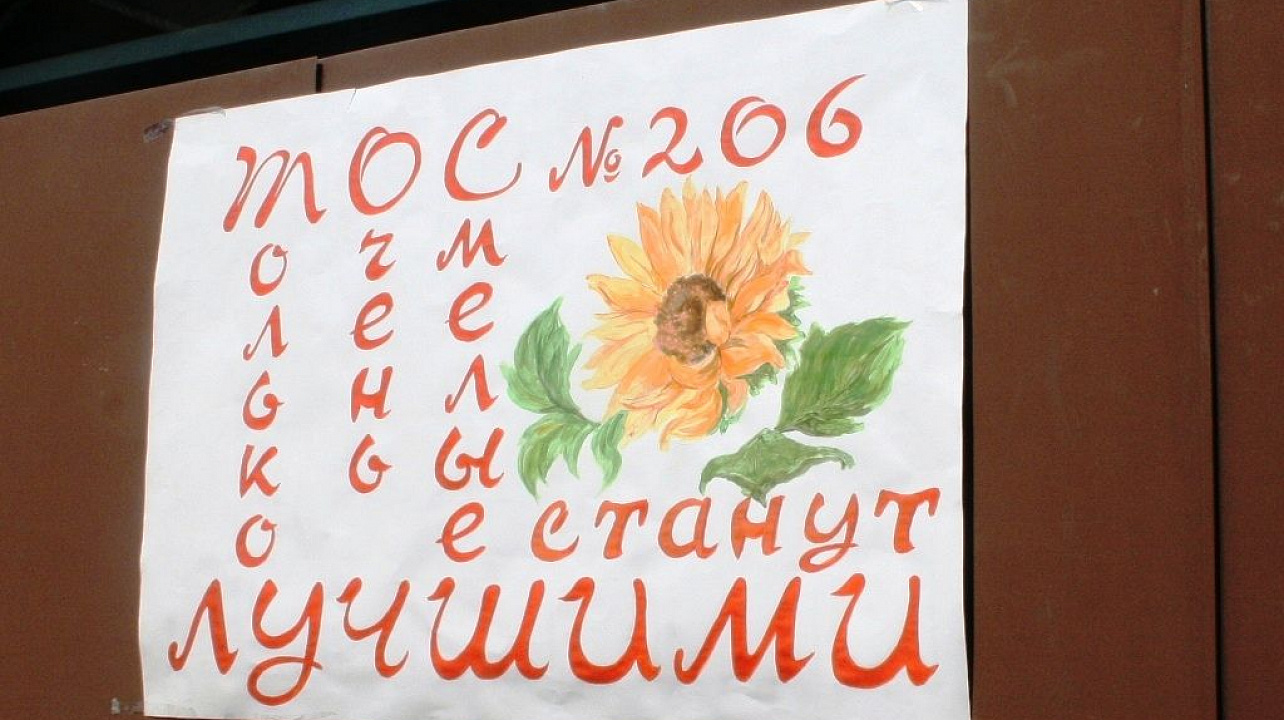 ТОС №206
Только
Очень
Смелые
станут
лучшими